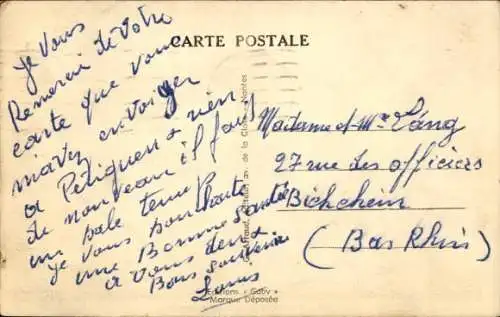 CARTE POSTALE
Je Vous
Remercie de Votre
carte que vous
m'avez envoiger
a Périgueux rien
de nouveau il fau
un sale temp
je vous souhaite
une Bonne Santée
a vous deux
Bons souvenir
Louis
Madame et Mr Lang
27 rue des officiers
Bichheim
(Bas Rhin)
de la
Nantes
Editions "Gaby"
Marque Déposée